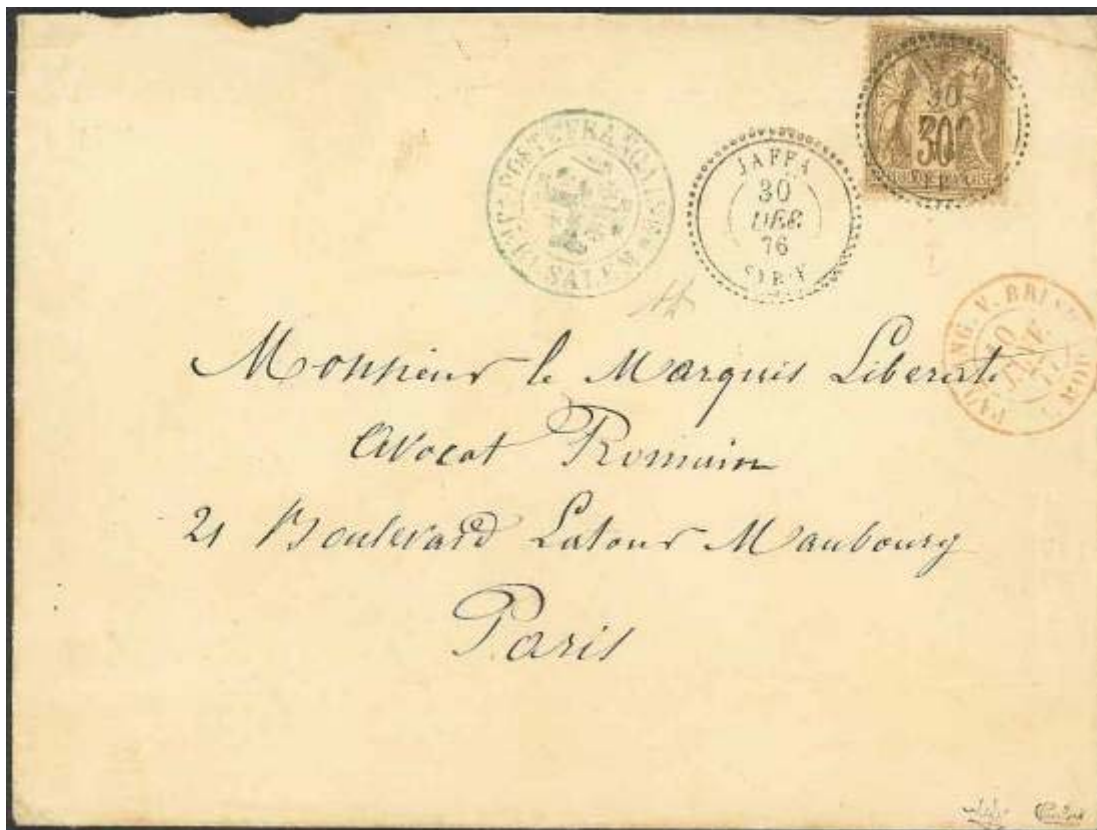 POSTE FRANÇAISE
JERUSALEM
JAFFA
30
DEC
76
SYRIE
30
30
Monsieur le Marquis Liberati
Avocat Romain
21 Boulevard Latour Maubourg
Paris